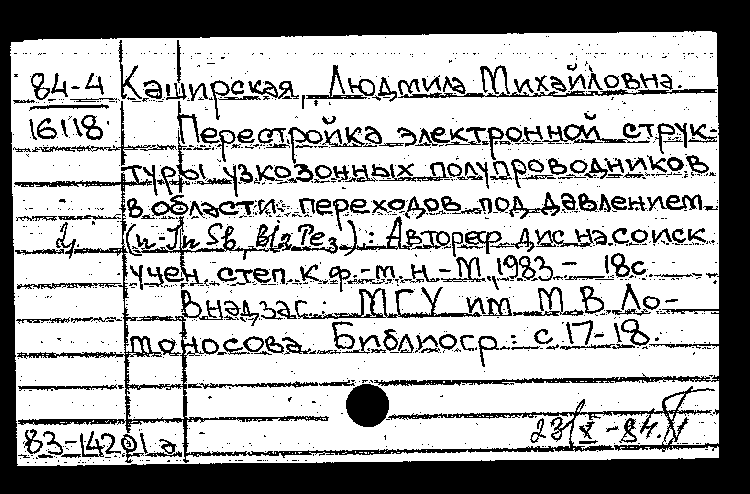 84-4 Каширская, Людмила Михайловна.
16118. Перестройка электронной струк-
туры узкозонных полупроводников
в области переходов под давлением
2. (n-InSb, Bi2Te3): Автореф дис на соиск
учен. степ. к ф.-т. н. - М., 1983 - 18с
В надзаг: МГУ им М. В Ло-
моносова Библиогр.: с 17-18.
83-14201а 23/X-84.